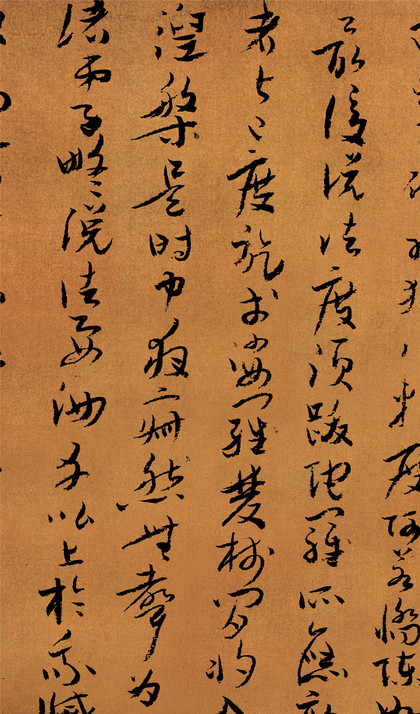 度阿若憍陳如
最後說法度須跋陀羅所應
者皆已度訖於娑羅雙樹間將入
涅槃是時中夜寂然無聲為
諸弟子略說法要汝等比丘於我滅